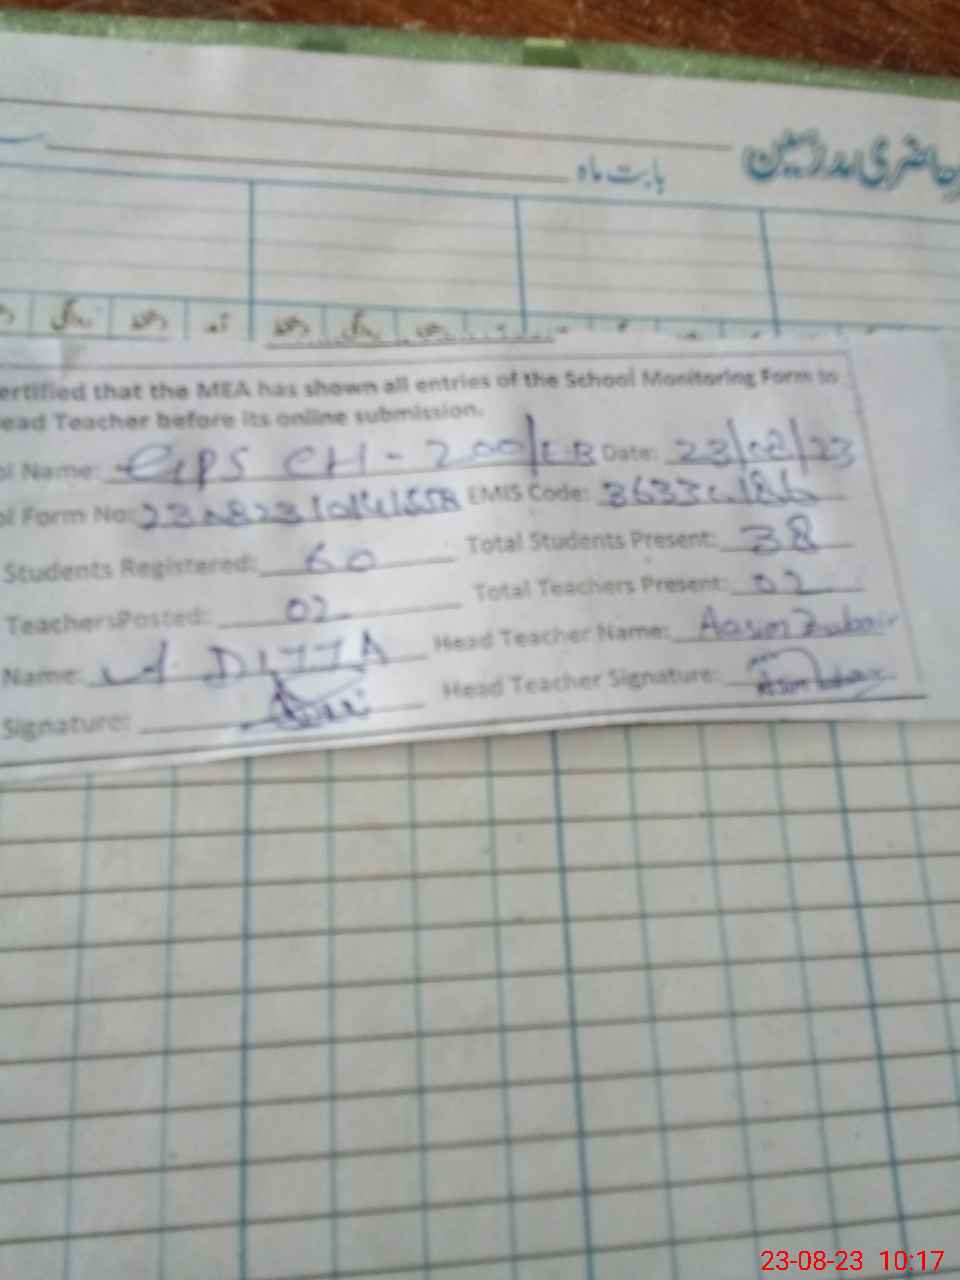 حاضری مدرسین
بابت ماہ
ertified that the MEA has shown all entries of the School Monitoring Form to
ead Teacher before its online submission.
ol Name: GPS CH - 200/E.B Date: 23/08/23
ol Form No: EMIS Code:
Students Registered: 60 Total Students Present: 38
TeachersPosted: 02 Total Teachers Present: 02
Name: A. DITTA Head Teacher Name: Aasim Zubair
Signature: Head Teacher Signature: Asim Zubair
23-08-23 10:17